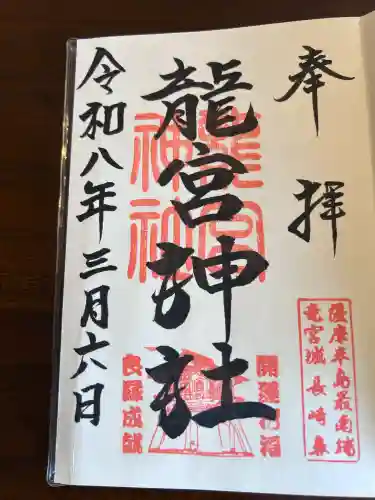 奉拝
龍宮神社
令和八年三月六日
龍宮
神社
開運招福
良縁成就
薩摩半島最南端
竜宮城長崎鼻